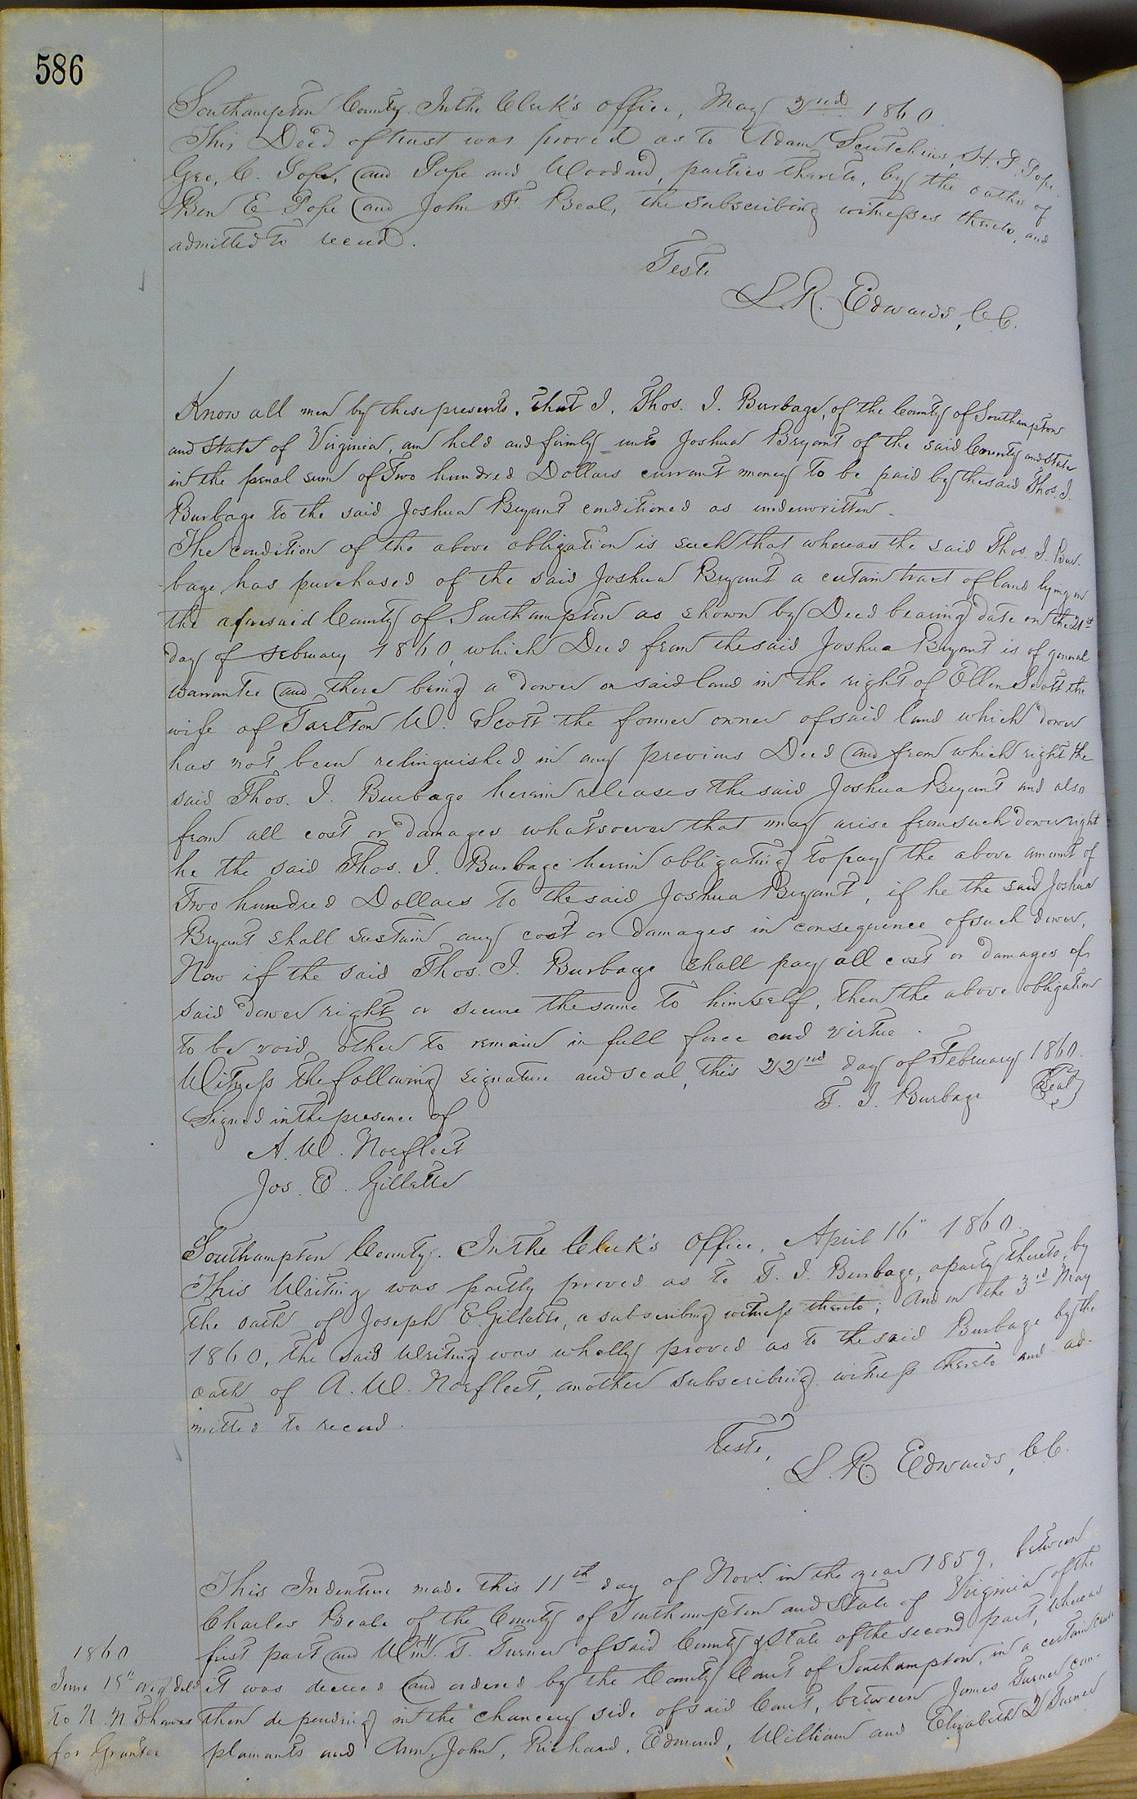 586
Southampton County. In the Clerk's office, May 2nd 1860.
This Deed of trust was proved as to Adam Scutchins H. P. Pope
Geo. C. Pope, and Pope and Woodard, parties thereto, by the oaths of
Ben E Pope and John F. Beal, the subscribing witnesses thereto, and
admitted to record.
Teste
L. R. Edwards, C.C.
Know all men by these presents, that I, Thos. I. Burbage, of the County of Southampton
and State of Virginia, am held and firmly unto Joshua Bryant of the said County and State
in the penal sum of Two hundred Dollars currant money to be paid by the said Thos. I.
Burbage to the said Joshua Bryant conditioned as underwritten.
The condition of the above obligation is such that whereas the said Thos. I. Bur-
bage has purchased of the said Joshua Bryant a certain tract of land lying in
the aforesaid County of Southampton as shown by Deed bearing date on the 21st
day of February 1860, which Deed from the said Joshua Bryant is of general
warrantee and there being a dower on said land in the right of Ellen Scott the
wife of Tarlton W. Scott the former owner of said land which dower
has not been relinquished in any previous Deed and from which right the
said Thos. I. Burbage herein releases the said Joshua Bryant and also
from all cost or damages whatsoever that may arise from such dower right
he the said Thos. I. Burbage herein obligating to pay the above amount of
Two hundred Dollars to the said Joshua Bryant, if he the said Joshua
Bryant shall sustain any cost or damages in consequence of such dower,
Now if the said Thos. I. Burbage shall pay all cost or damages of
said dower right or secure the same to himself, then the above obligation
to be void, other to remain in full force and virtue.
Witness the following signature and seal, this 22nd day of February 1860.
Signed in the presence of T. I. Burbage Seal
A. W. Norfleet
Jos. E. Gillette
Southampton County. In the Clerk's Office, April 16" 1860.
This Writing was partly proved as to T. I. Burbage, a party thereto, by
the oath of Joseph E. Gillette, a subscribing witness thereto, And on the 3rd May
1860, the said Writing was wholly proved as to the said Burbage by the
oath of A. W. Norfleet, another subscribing witness thereto and ad-
mitted to record.
Teste,
L. R. Edwards, C.C.
This Indenture made this 11th day of Novr. in the year 1859, between
Charles Beale of the County of Southampton and State of Virginia of the
first part and Wm. T. Turner of said County & State of the second part, whereas
it was decreed and ordered by the County Court of Southampton, in a certain cause
then depending in the chancery side of said Court, between James Turner com-
plainants and Ann, John, Richard, Edmund, William and Elizabeth D Turner
1860
June 18"
to N. N
for Grantee